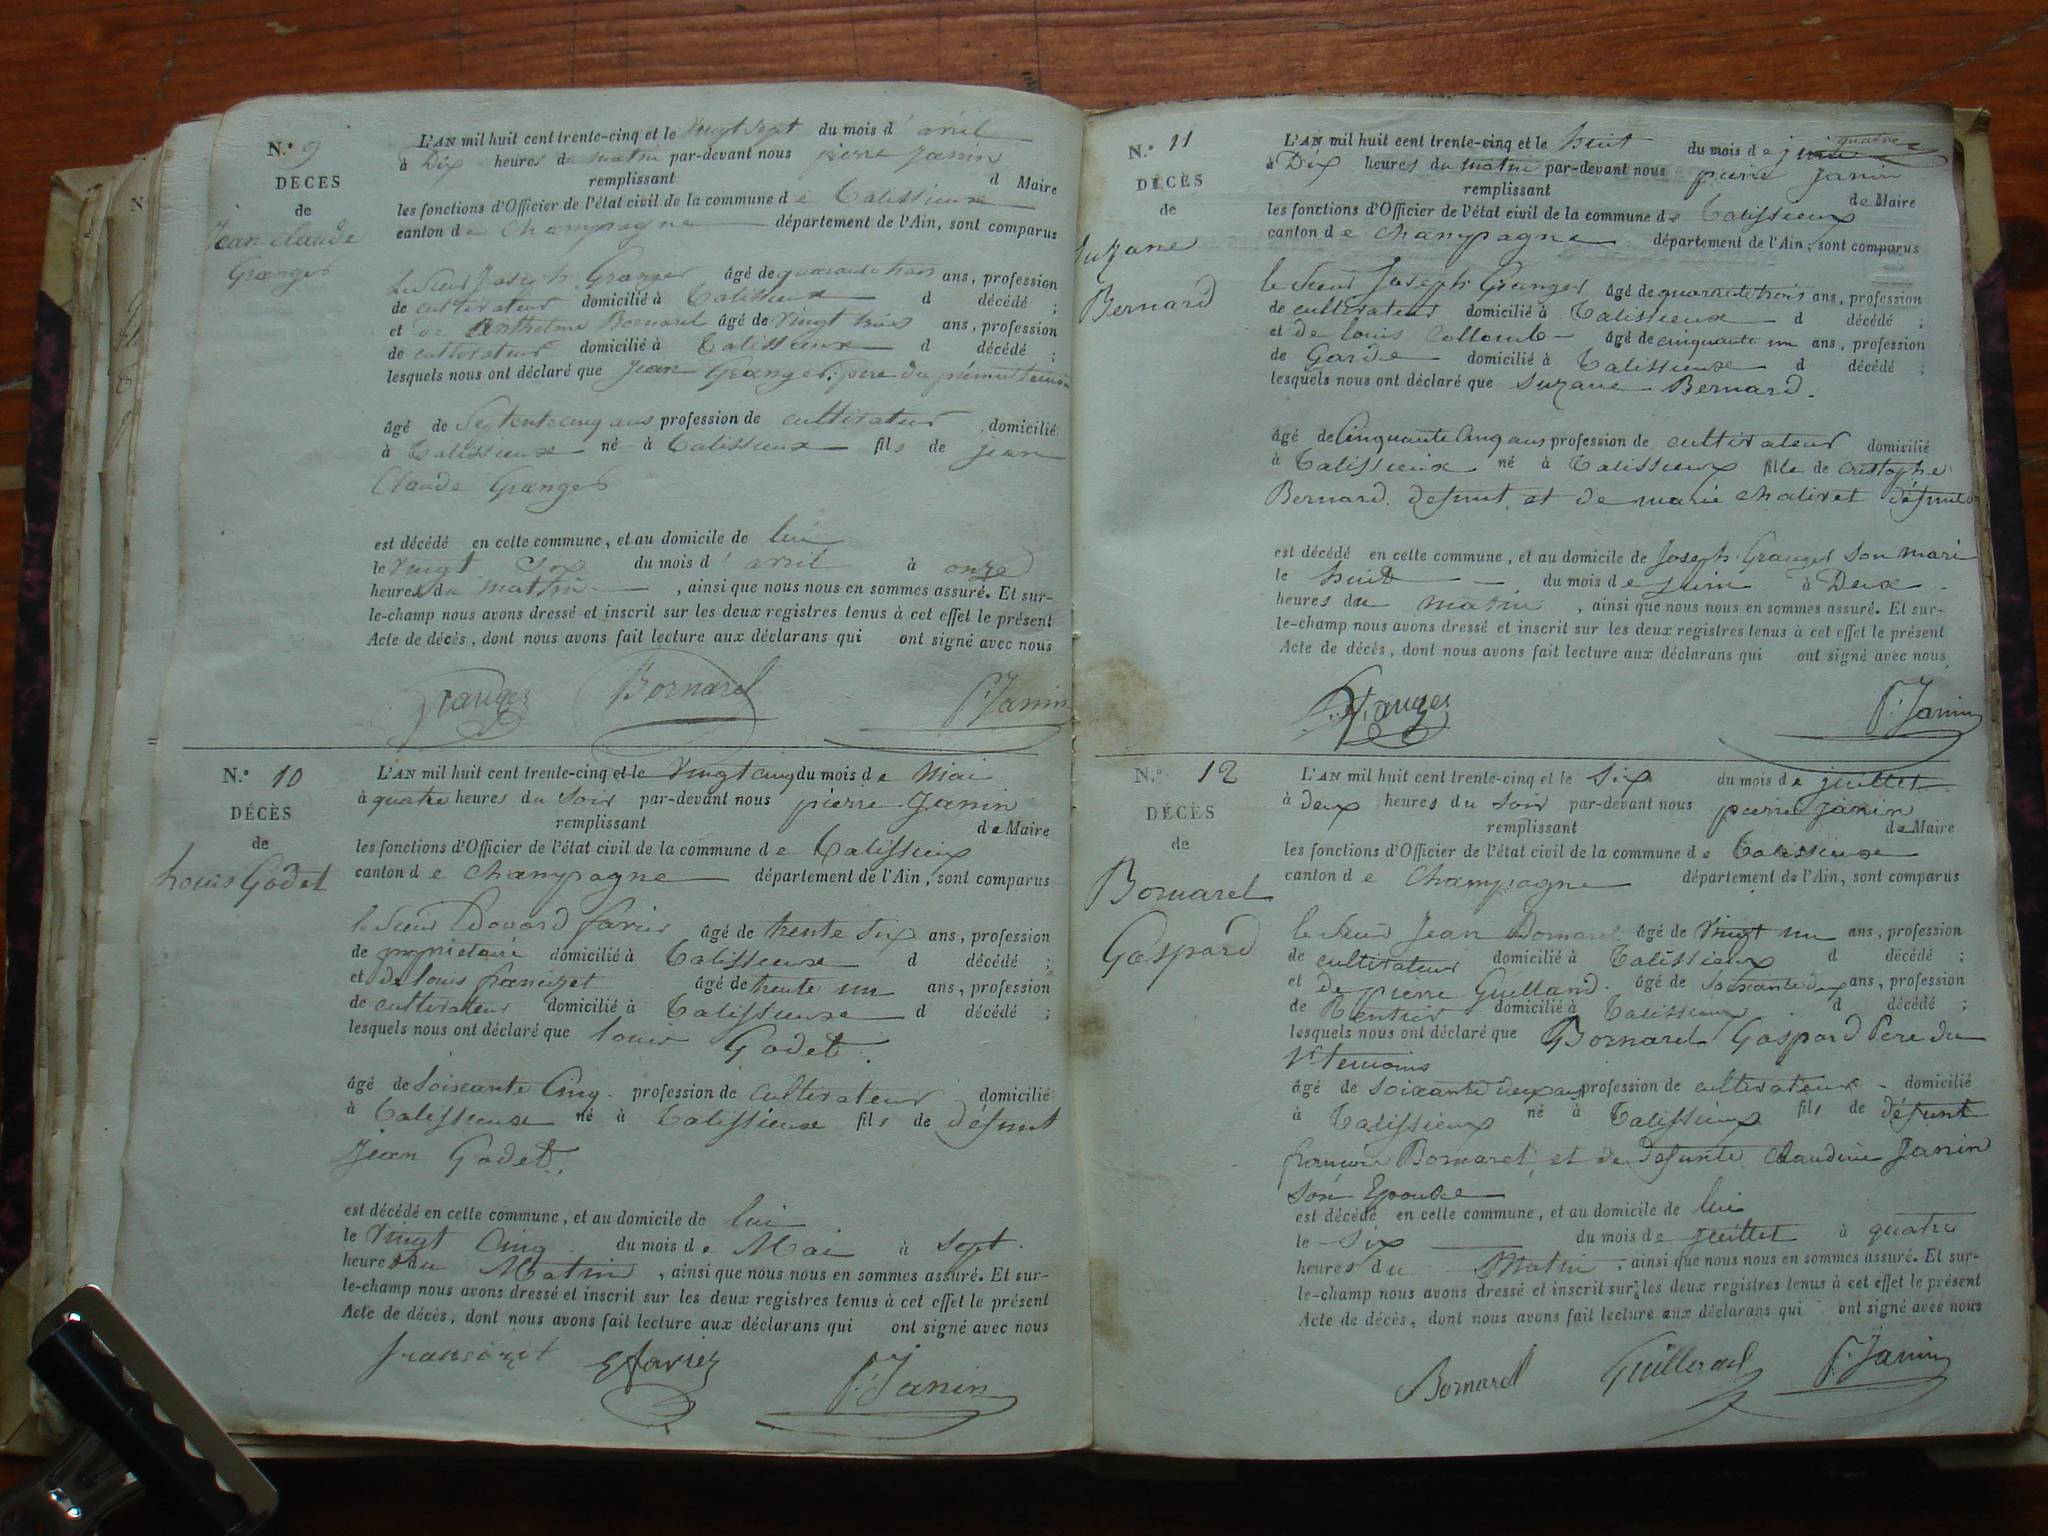 N.° 9
DÉCÈS
de
Jean Claude
Granger
L'AN mil huit cent trente-cinq et le vingt sept du mois d' avril
à Dix heures du matin par-devant nous pierre Janin
remplissant d Maire
les fonctions d'Officier de l'état civil de la commune de Talissieux
canton de Champagne département de l'Ain, sont comparus
le Sieur Joseph Granger âgé de quarante trois ans, profession
de cultivateur domicilié à Talissieux d décédé ;
et de Anthelme Bornarel âgé de vingt trois ans, profession
de cultivateur domicilié à Talissieux d décédé ;
lesquels nous ont déclaré que Jean Granger, pere du premier temoin
âgé de Septente cinq ans profession de cultivateur domicilié
à Talissieux né à Talissieux fils de jean
Claude Granger
est décédé en cette commune, et au domicile de lui
le vingt Six du mois d' avril à onze
heures du matin , ainsi que nous nous en sommes assuré. Et sur-
le-champ nous avons dressé et inscrit sur les deux registres tenus à cet effet le présent
Acte de décès, dont nous avons fait lecture aux déclarans qui ont signé avec nous
Granger Bornarel P. Janin
N.° 10
DÉCÈS
de
Louis Godet
L'AN mil huit cent trente-cinq et le vingt cinq du mois de Mai
à quatre heures du Soir par-devant nous pierre Janin
remplissant de Maire
les fonctions d'Officier de l'état civil de la commune de Talissieux
canton de Champagne département de l'Ain, sont comparus
le Sieur Edouard favier âgé de trente Six ans, profession
de propriétaire domicilié à Talissieux d décédé ;
et De louis francizet âgé de trente un ans, profession
de cultivateur domicilié à Talissieux d décédé ;
lesquels nous ont déclaré que louis Godet.
âgé de Soixante Cinq profession de cultivateur domicilié
à Talissieux né à Talissieux fils de défunt
Jean Godet.
est décédé en cette commune, et au domicile de lui
le vingt Cinq du mois de Mai à Sept
heures du Matin , ainsi que nous nous en sommes assuré. Et sur-
le-champ nous avons dressé et inscrit sur les deux registres tenus à cet effet le présent
Acte de décès, dont nous avons fait lecture aux déclarans qui ont signé avec nous
francizet E favier P. Janin
N.° 11
DÉCÈS
de
Suzane
Bernard
L'AN mil huit cent trente-cinq et le huit du mois de juin
à Dix heures du matin par-devant nous pierre Janin
remplissant de Maire
les fonctions d'Officier de l'état civil de la commune de Talissieux
canton de Champagne département de l'Ain, sont comparus
le Sieur Joseph Granger âgé de quarante trois ans, profession
de cultivateur domicilié à Talissieux d décédé ;
et de louis Collomb âgé de cinquante un ans, profession
de Garde domicilié à Talissieux d décédé ;
lesquels nous ont déclaré que Suzane Bernard.
âgé de Cinquante Cinq ans profession de cultivateur domicilié
à Talissieux né à Talissieux fille de Cristophe
Bernard defunt et de marie chalivet défunte
est décédé en cette commune, et au domicile de Joseph Granger Son mari
le huit du mois de juin à Deux
heures du matin , ainsi que nous nous en sommes assuré. Et sur-
le-champ nous avons dressé et inscrit sur les deux registres tenus à cet effet le présent
Acte de décès, dont nous avons fait lecture aux déclarans qui ont signé avec nous
Granger P. Janin
N.° 12
DÉCÈS
de
Bornarel
Gaspard
L'AN mil huit cent trente-cinq et le Six du mois de juillet
à deux heures du Soir par-devant nous pierre Janin
remplissant de Maire
les fonctions d'Officier de l'état civil de la commune de Talissieux
canton de Champagne département de l'Ain, sont comparus
le Sieur Jean Bornarel âgé de vingt un ans, profession
de cultivateur domicilié à Talissieux d décédé ;
et De pierre Guilland. âgé de Soixante deux ans, profession
de Rentier domicilié à Talissieux d décédé ;
lesquels nous ont déclaré que Bornarel Gaspard Pere du
1er temoins
âgé de Soixante deux ans profession de cultivateur domicilié
à Talissieux né à Talissieux fils de défunt
francois Bornarel et de defunte Claudine Janin
Son Epouse
est décédé en cette commune, et au domicile de lui
le Six du mois de juillet à quatre
heures du Matin , ainsi que nous nous en sommes assuré. Et sur-
le-champ nous avons dressé et inscrit sur les deux registres tenus à cet effet le présent
Acte de décès, dont nous avons fait lecture aux déclarans qui ont signé avec nous
Bornarel P. Janin